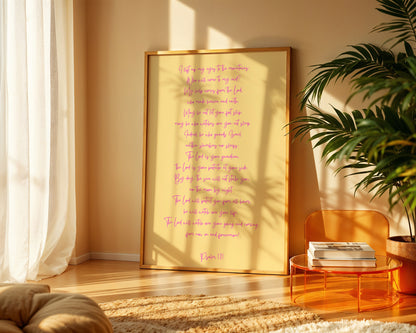 I lift up my eyes to the mountains;
Who will come to my aid
My help comes from the Lord,
who made heaven and earth.
May he not let your foot slip,
may he who watches over you not sleep.
Indeed, he who guards Israel
neither slumbers nor sleeps.
The Lord is your guardian;
the Lord is your at your side.
By day the sun will not strike you,
nor the moon by night.
The Lord will you from all harm;
he will watch over your life.
The Lord will watch over your going and coming
from now on and forevermore!
Psalm 121